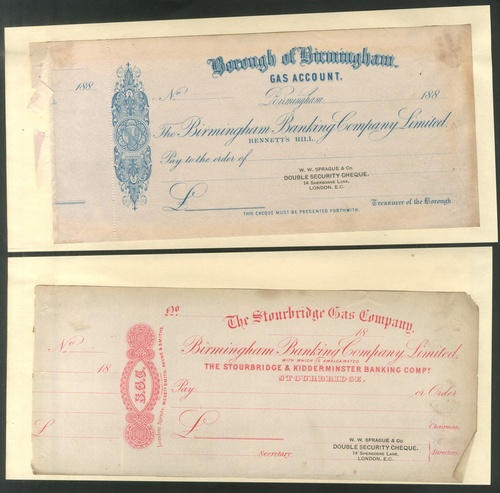 Borough of Birmingham.
GAS ACCOUNT.
188
No
Birmingham, 188
The Birmingham Banking Company Limited.
BENNETT'S HILL.
Pay to the order of
W. W. SPRAGUE & Co.
DOUBLE SECURITY CHEQUE.
14 SHERBORNE LANE,
LONDON, E.C.
£
Treasurer of the Borough
THIS CHEQUE MUST BE PRESENTED FORTHWITH.
No
The Stourbridge Gas Company,
No
18
18
Birmingham Banking Company, Limited.
WITH WHICH IS AMALGAMATED
THE STOURBRIDGE & KIDDERMINSTER BANKING COMPY
STOURBRIDGE.
S.G.C.
London Agents,
PAYNE & SMITHS.
Pay or Order
£
£
Chairman.
W. W. SPRAGUE & Co.
DOUBLE SECURITY CHEQUE.
14 SHERBORNE LANE,
LONDON, E.C.
Directors.
Secretary.